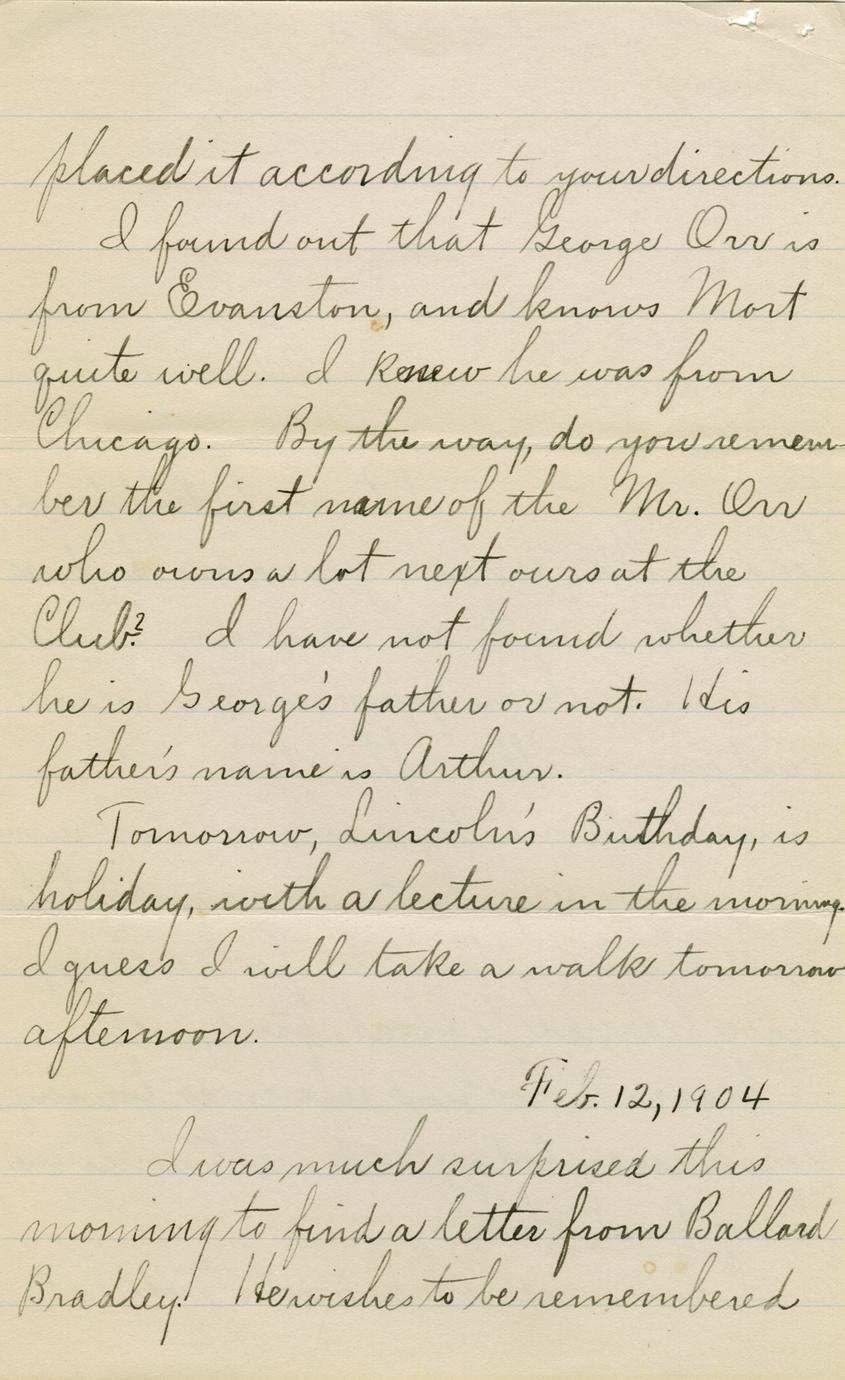 placed it according to your directions.
I found out that George Orr is
from Evanston, and knows Mort
quite well. I knew he was from
Chicago. By the way, do you remem-
ber the first name of the Mr. Orr
who owns a lot next ours at the
Club? I have not found whether
he is George's father or not. His
father's name is Arthur.
Tomorrow, Lincoln's Birthday, is
holiday, with a lecture in the morning.
I guess I will take a walk tomorrow
afternoon.
Feb. 12, 1904
I was much surprised this
morning to find a letter from Ballard
Bradley. He wishes to be remembered